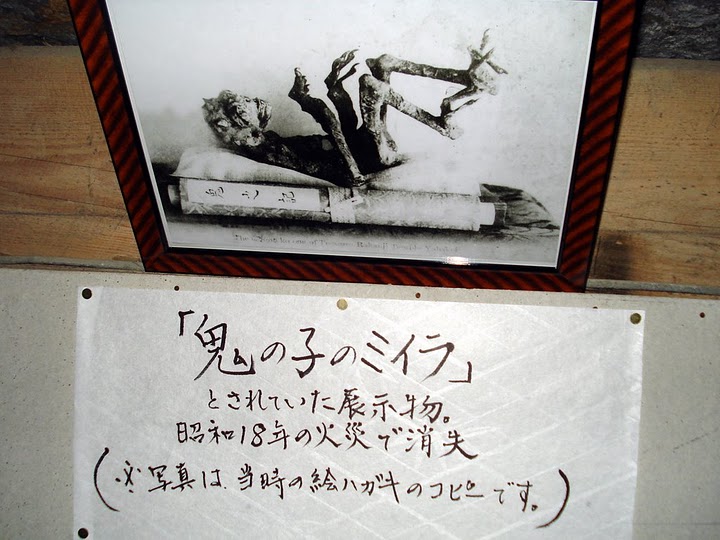 鬼之記
「鬼の子のミイラ」
とされていた展示物。
昭和18年の火災で消失
(※写真は、当時の絵ハガキのコピーです。)